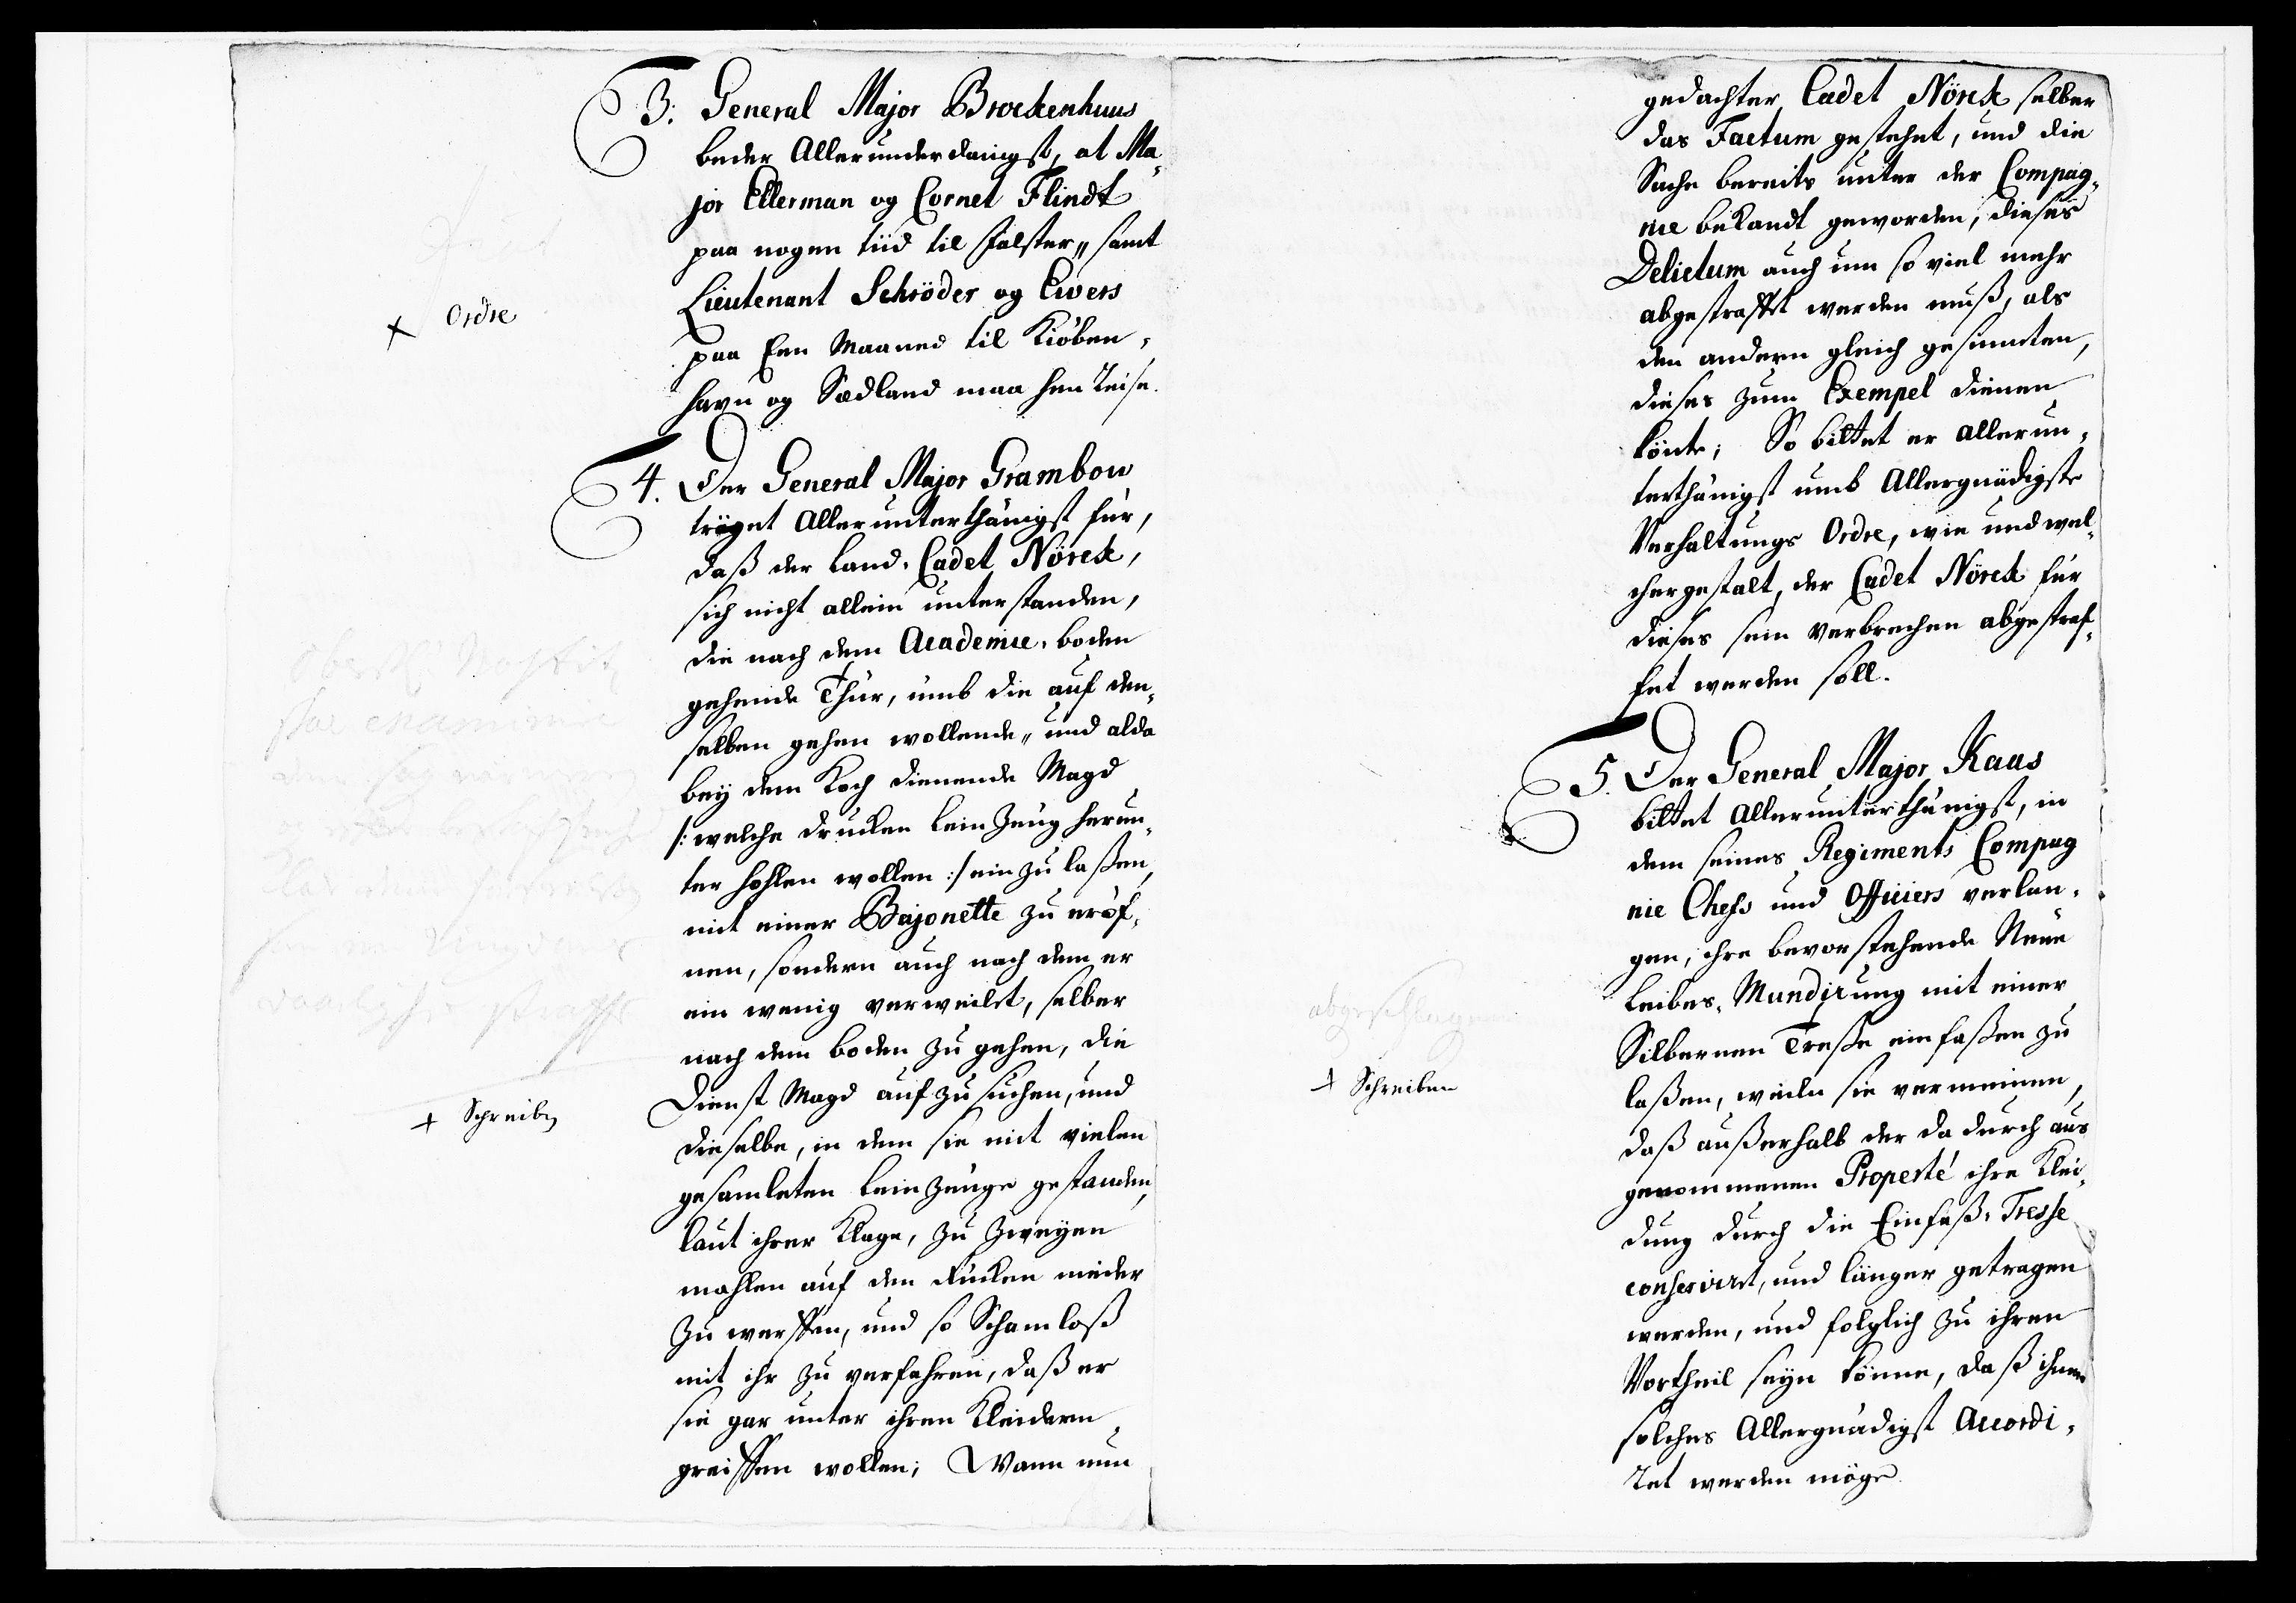 3. General Major Brockenhuus
beder Allerunderdanigst, at Ma-
jor Ellerman og Cornet Flindt
paa nogen tiid til Falster,, samt
Lieutenant Schröder og Ewers
paa Een Maaned til Kiöben-
havn og Sædland maa hen Reise.
+ Ordre
4. Der General Major Grambow
träget Allerunterthänigst für,
daß der Land-Cadet Nörck,
sich nicht allein unterstanden,
die nach dem Academie-boden
gehende Thür, umb die auf den-
selben gehen wollende,, und alda
bey dem Koch dienende Magd
/: welche drucken leinzeug herun-
ter hohlen wollen :/ ein zu laßen,
mit einer Bajonette zu eröf-
nen, sondern auch nach dem er
ein wenig verweilet, selber
nach dem boden zu gehen, die
Dienst Magd auf zu suchen, und
dieselbe, in dem sie mit vielen
gesamleten leinzeuge gestanden,
laut ihrer Klage, zu zweyen
mahlen auf den Rücken nieder
zu werffen, und so Schamloß
mit ihr zu verfahren, daß er
sie gar unter ihren Kleidern
greiffen wollen; Wann nun
+ Schreiben
gedachter Cadet Nörck selber
das Factum gestehet, und die
Sache bereits unter der Compag-
nie bekandt geworden, dieses
Delictum auch um so viel mehr
abgestraffet werden muß, als
den andern gleich gesinnten,
dieses zum Exempel dienen
könte; So bittet er allerun-
terthänigst umb Allergnädigste
Verhaltungs Ordre, wie und wel-
chergestalt, der Cadet Nörck für
dieses sein verbrechen abgestraf-
fet werden soll.
5. Der General Major Kaas
bittet Allerunterthänigst, in
dem seines Regiments Compag
nie Chefs und Officiers verlan-
gen, ihre bevorstehende Neue
Leibes-Mundirung mit einer
Silbernen Treße einfaßen zu
laßen, weiln sie vermeinen,
daß außerhalb der da durch aus
genommenen Properté ihre Klei-
dung durch die Einfaß-Tresse
conserviret, und länger getragen
werden, und folglich zu ihren
Vortheil seyn könne, daß ihnen
solches Allergnädigst Accordi-
ret werden möge.
abgeschlagen
+ Schreiben